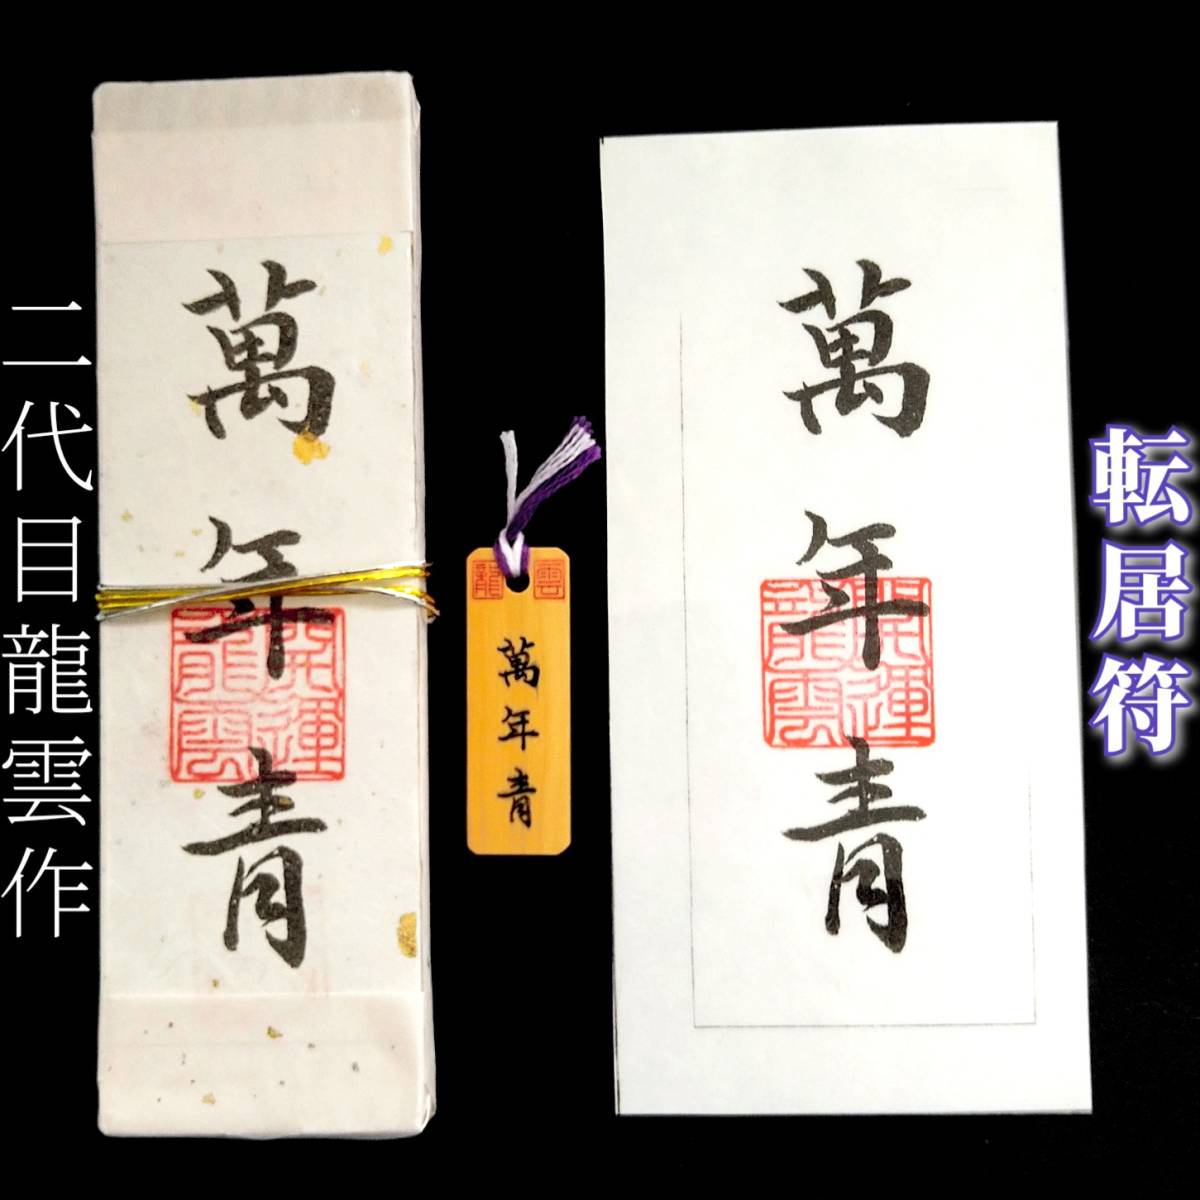 転居符
萬年青
開運
龍雲
龍雲
萬年青
萬年青
開運
龍雲
二代目龍雲作